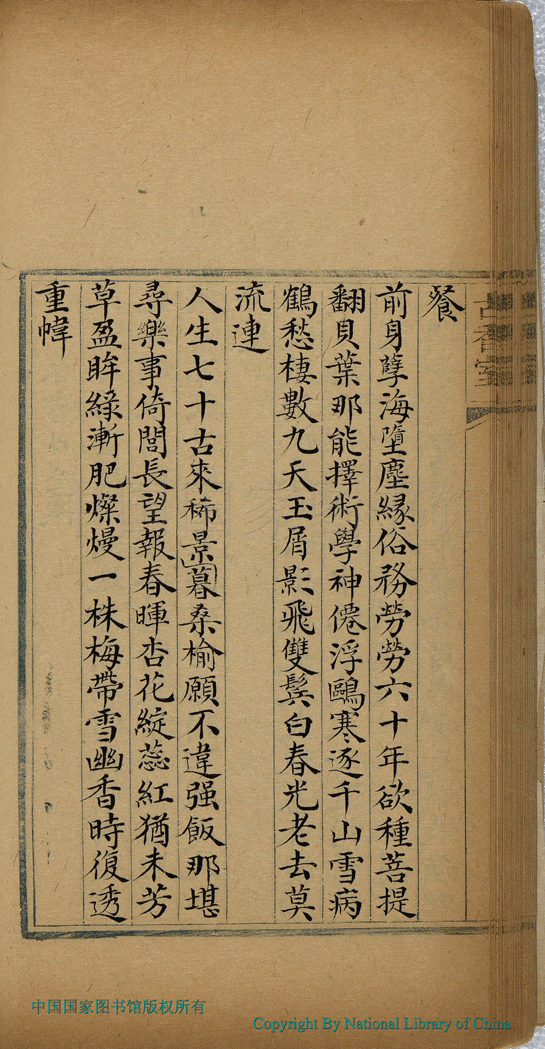 餐
前身孽海墮塵緣俗務勞勞六十年欲種菩提
翻貝葉那能擇術學神僊浮鷗寒逐千山雪病
鶴愁棲數九天玉屑影飛雙鬂白春光老去莫
流連
人生七十古來稀景暮桑榆願不違强飯那堪
尋樂事倚閭長望報春暉杏花綻蕊紅猶未芳
草盈眸綠漸肥燦熳一株梅帶雪幽香時復透
重幃
中国国家图书馆版权所有
Copyright By National Library of China